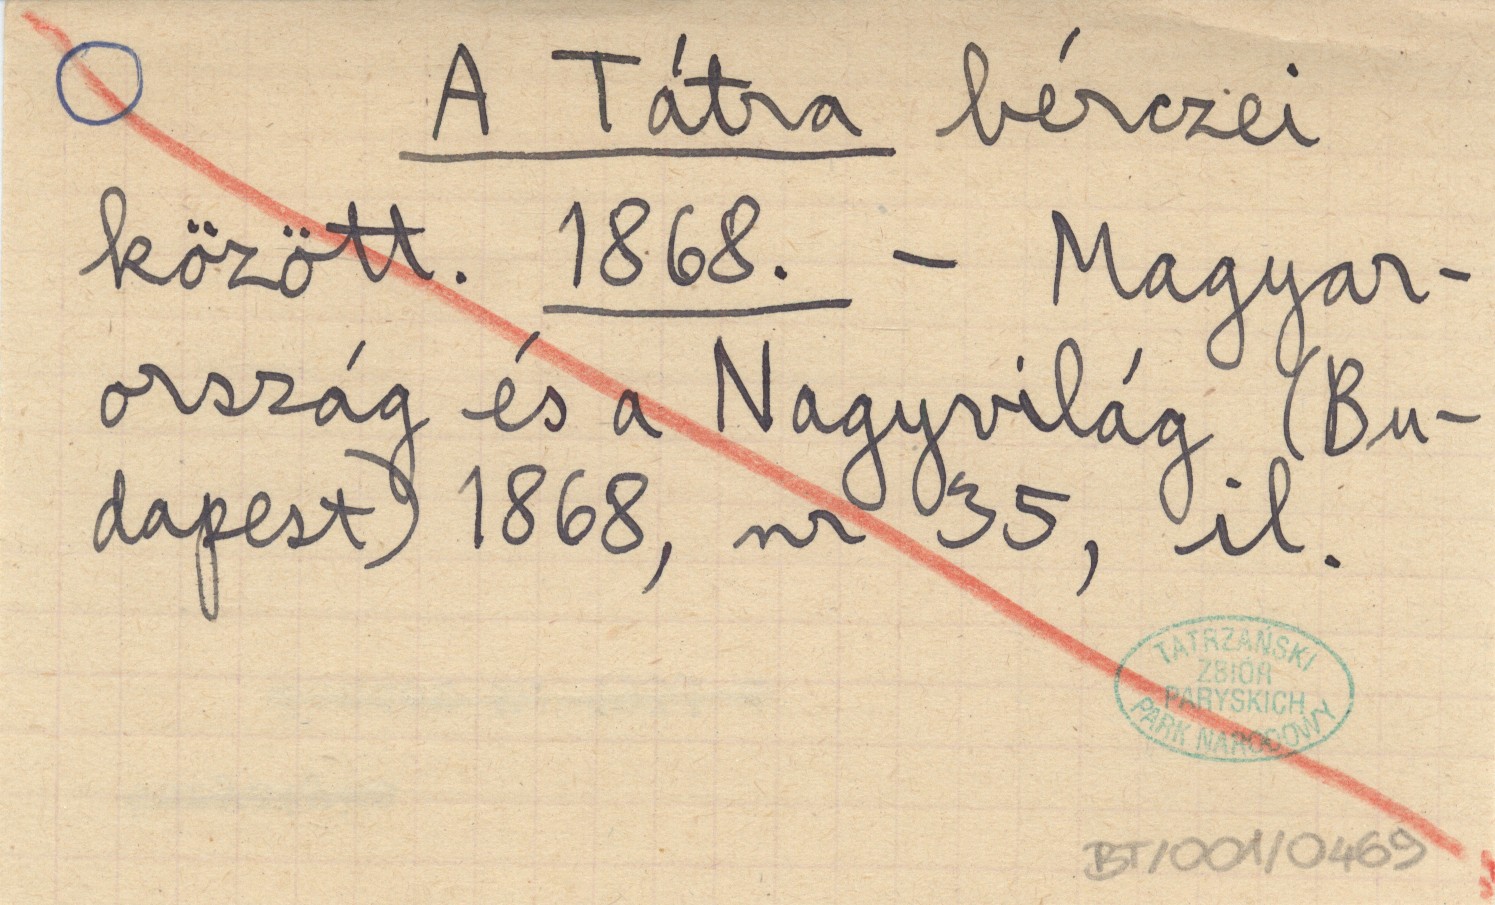 A Tátra bérczei
között. 1868. – Magyar-
ország és a Nagyvilág (Bu-
dapest) 1868, nr 35, il.
TATRZAŃSKI
ZBIÓR
PARYSKICH
PARK NARODOWY
BT/001/0469